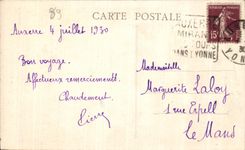 89
CARTE POSTALE
Auxerre 4 juillet 1930
Bon voyage.
Affectueux remerciements.
Chaudement
Pierre
AUXERRE
MIRAN
DANS L'YONNE
YONNE
15c
Mademoiselle
Marguerite Laloy
1 rue
Le Mans